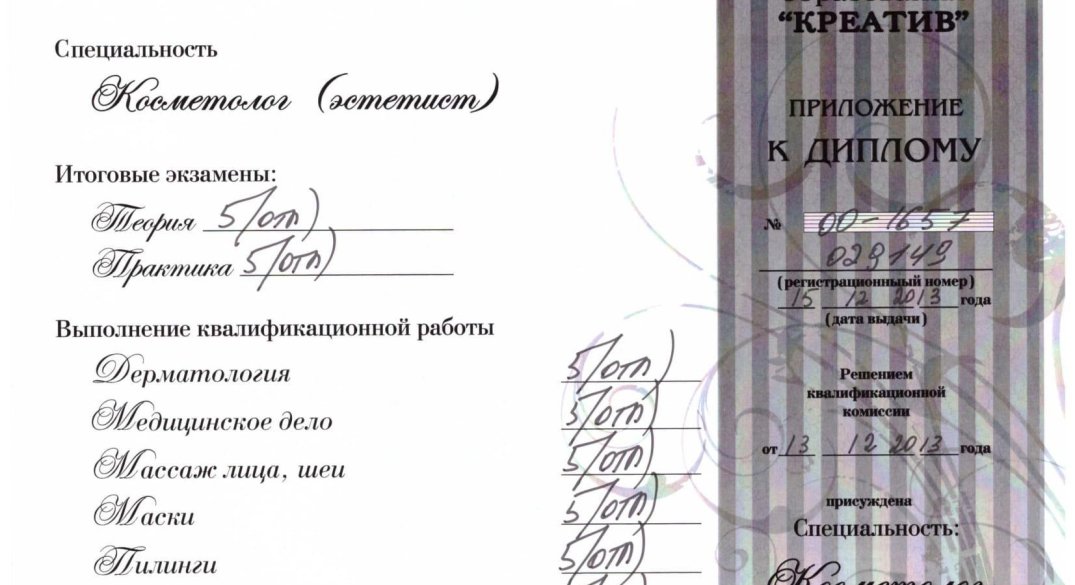 Специальность
Косметолог (эстетист)
Итоговые экзамены:
Теория 5/отл)
Практика 5/отл)
Выполнение квалификационной работы
Дерматология 5/отл)
Медицинское дело 5/отл)
Массаж лица, шеи 5/отл)
Маски 5/отл)
Пилинги 5/отл)
"КРЕАТИВ"
ПРИЛОЖЕНИЕ
К ДИПЛОМУ
№ 00-1657
029149
(регистрационный номер)
15 12 2013 года
(дата выдачи)
Решением
квалификационной
комиссии
от 13 12 2013 года
присуждена
Специальность:
Косметолог